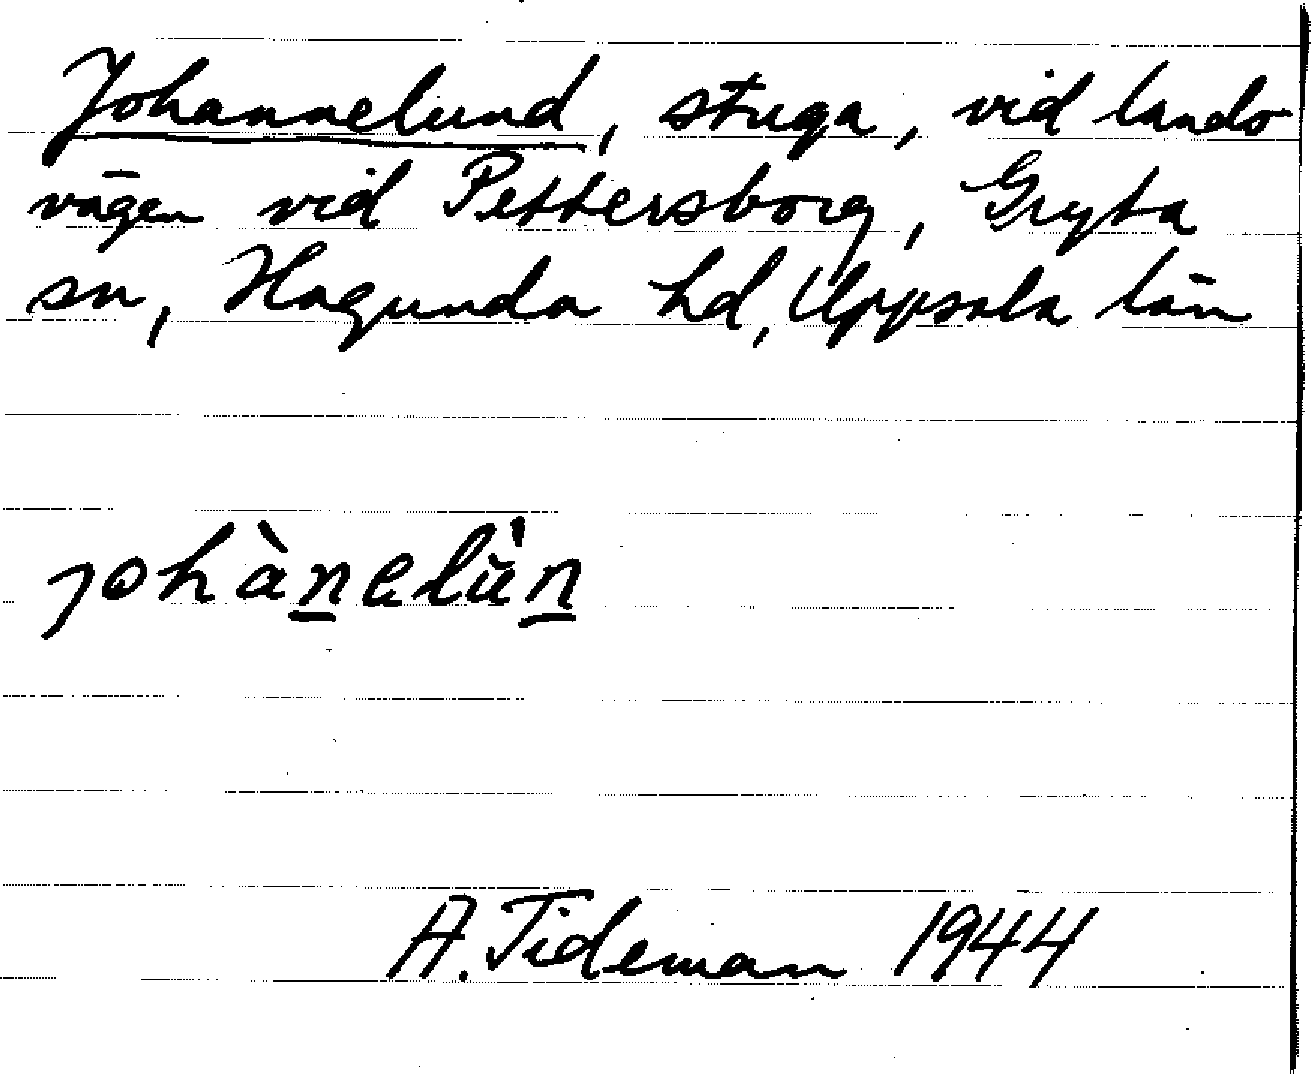 Johannelund, stuga, vid lands-
vägen vid Pettersborg, Gryta
sn, Hagunda hd, Uppsala län
johànelùn
A. Tideman 1944